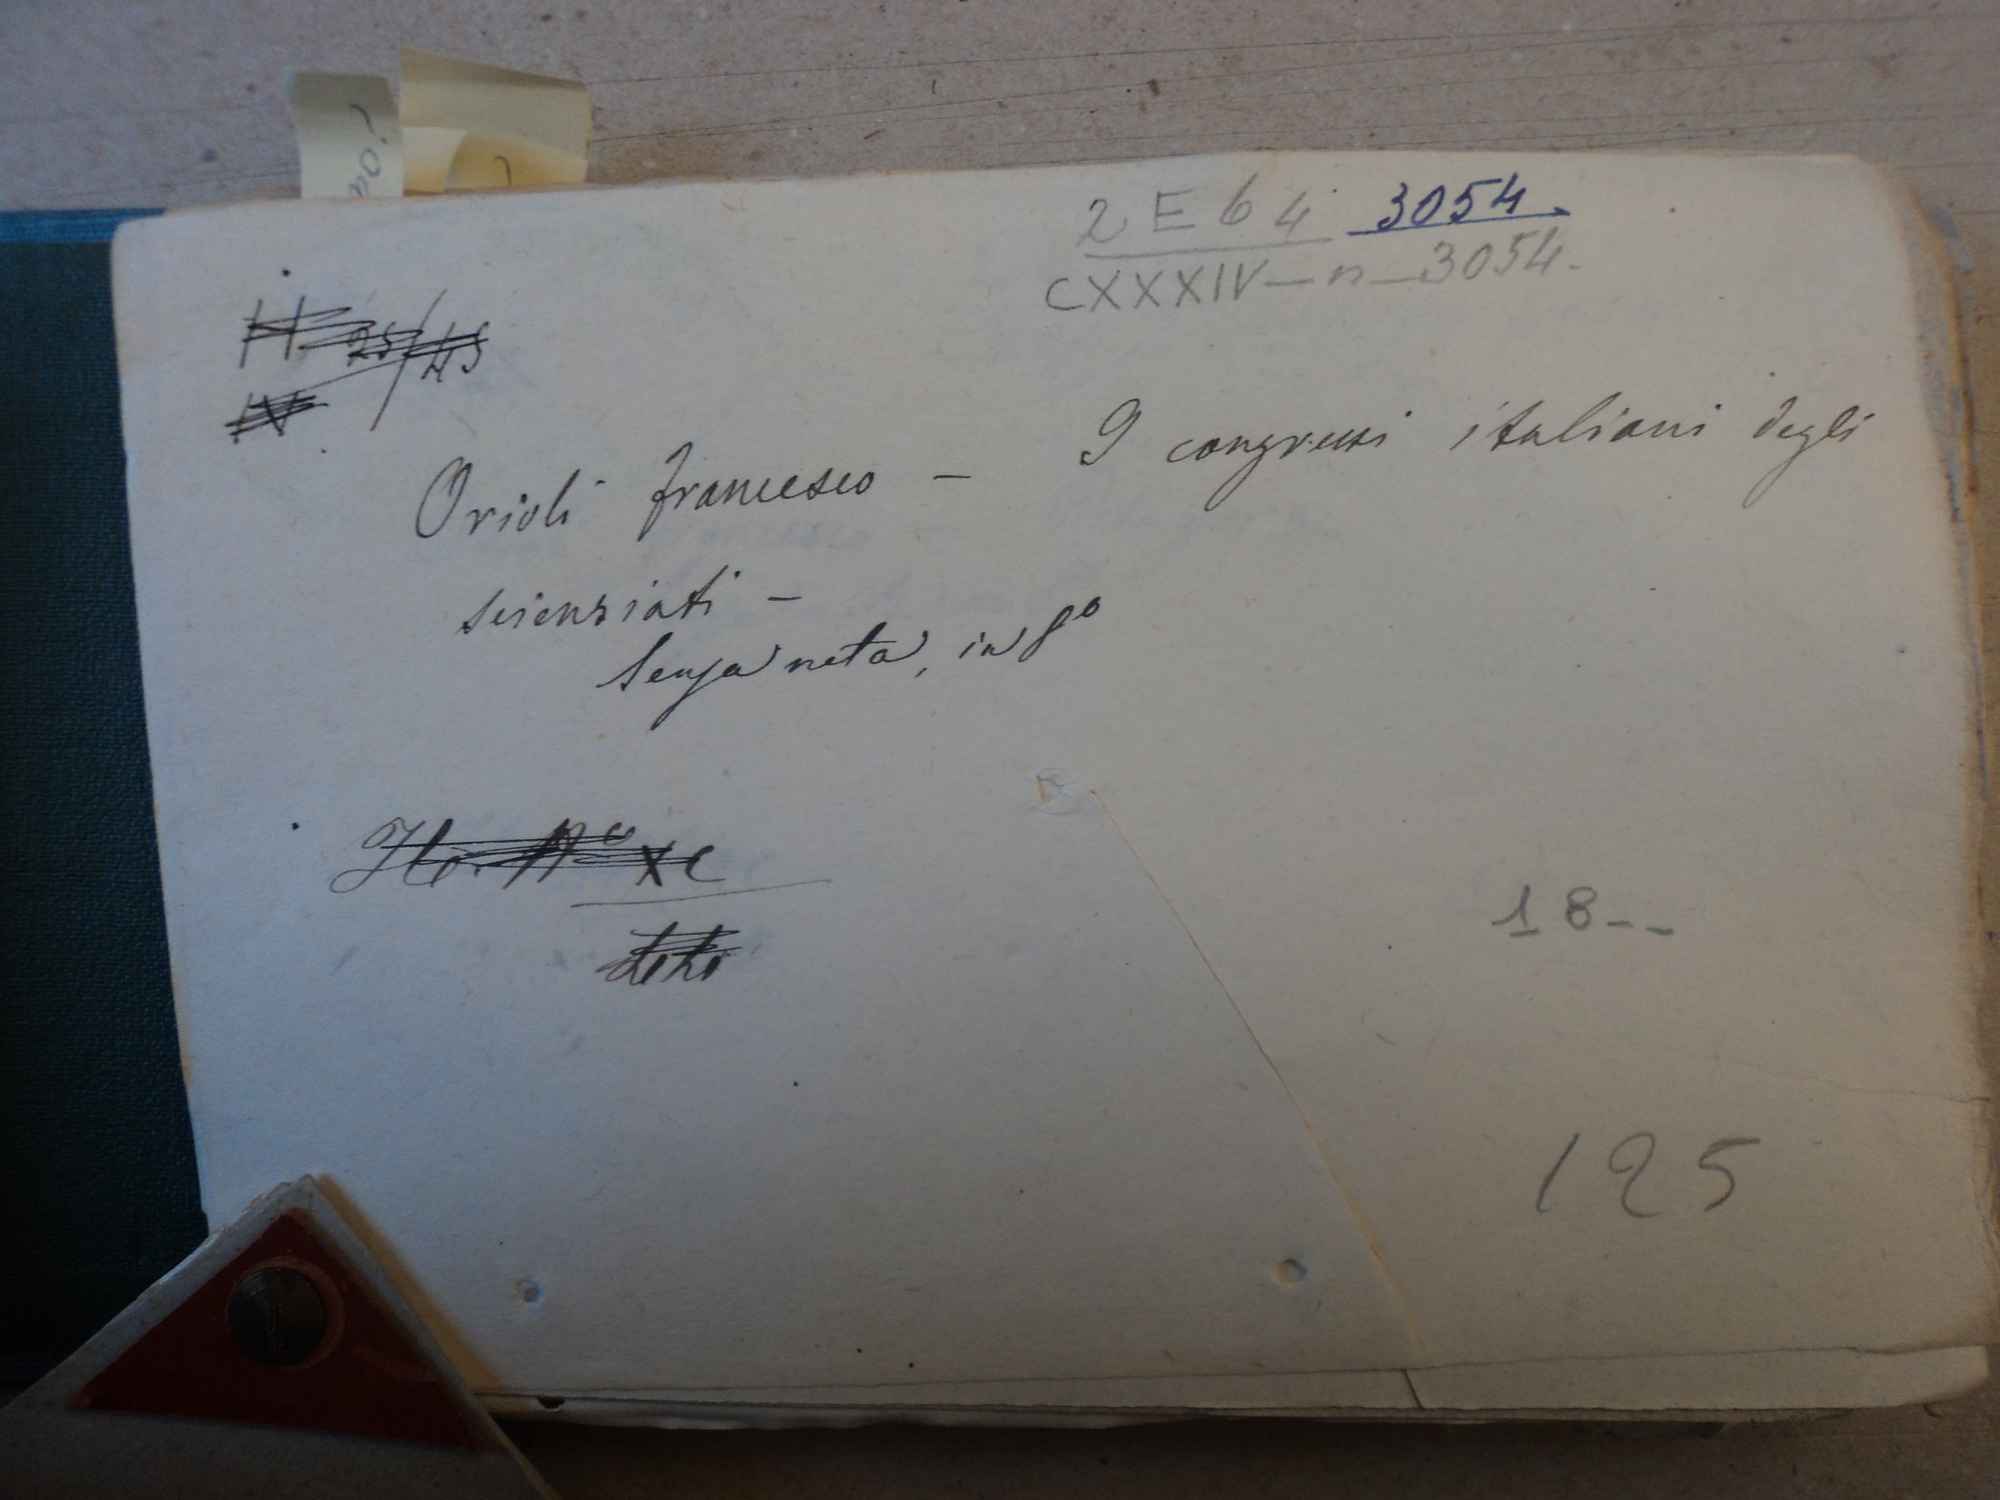 2 E 6 4 3054
CXXXIV - n - 3054.
H 25/45
IV
Orioli Francesco - I congressi italiani degli
scienziati -
Senza nota, in 8º
XC
18--
125